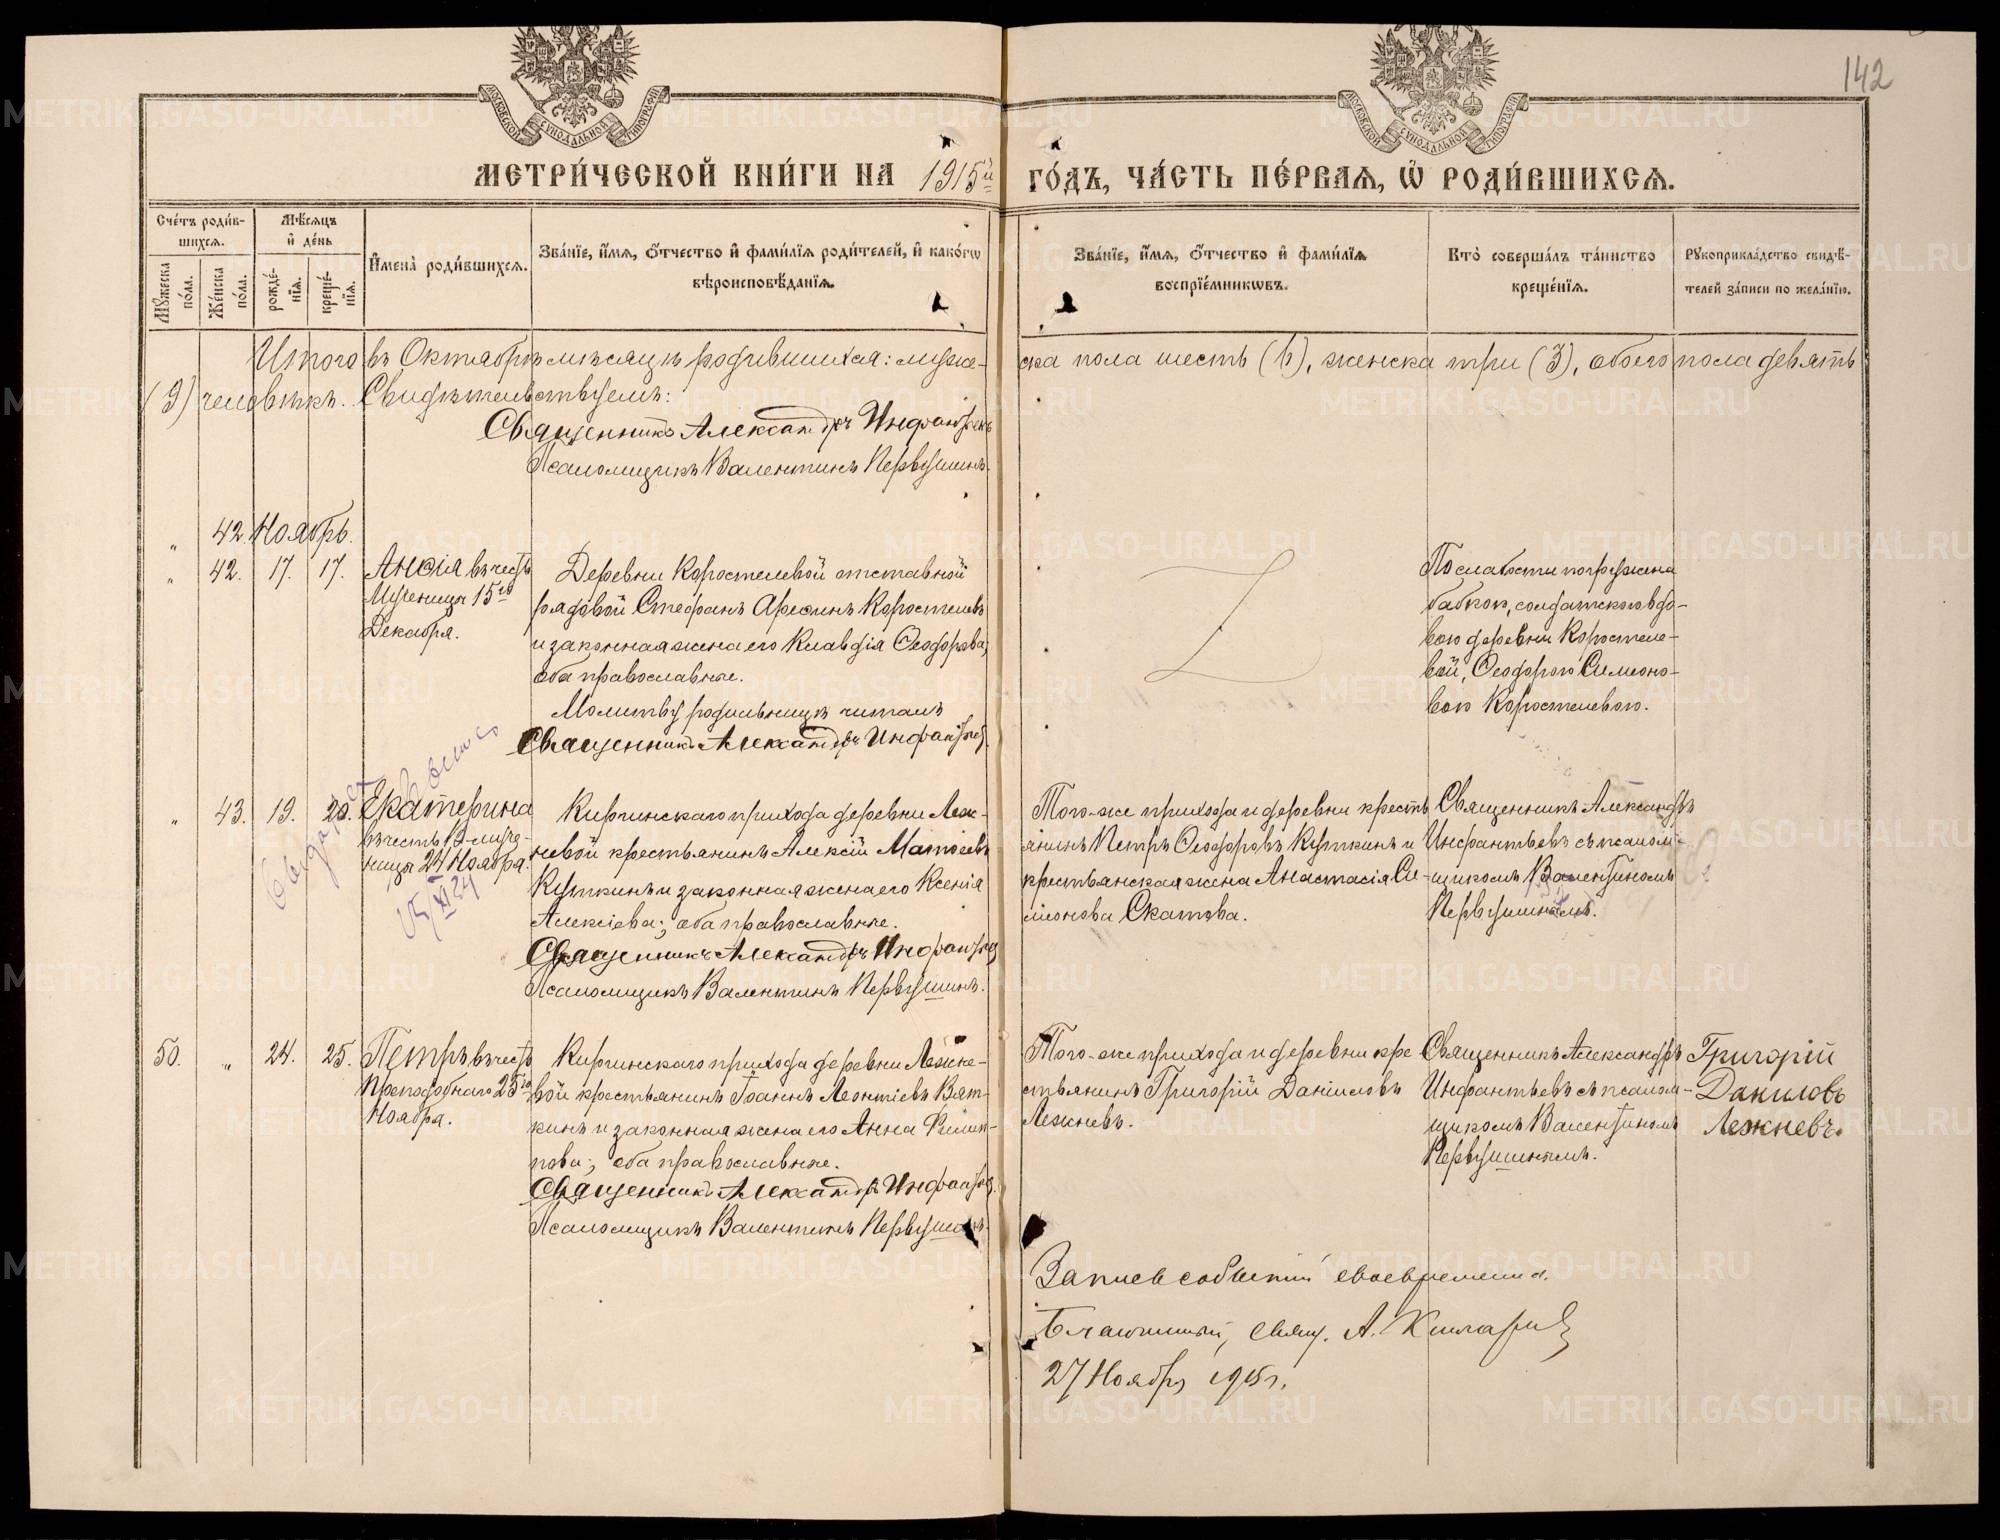 142
МЕТРИ́ЧЕСКОЙ КНИ́ГИ НА 1915й ГО́ДЪ, ЧА́СТЬ ПЕ́РВАЯ, Ѡ РОДИ́ВШИХСЯ.
Сче́тъ роди́вшихся.
Мꙋжеска по́ла.
Же́нска по́ла.
Мѣ́сяцъ и де́нь
рожде́нїя.
креще́нїя.
Имена̀ роди́вшихся.
Зва́нїе, и́мя, о́тчество и фами́лїя роди́телей, и како́гѡ вѣроисповѣ́данїя.
Зва́нїе, и́мя, о́тчество и фами́лїя воспрїе́мникѡвъ.
Кто̀ соверша́лъ та́инство креще́нїя.
Рꙋкоприкла́дство свидѣ́телей за́писи по жела́нїю.
Итого въ Октябрѣ мѣсяцѣ родившихся: муже-
ска пола шесть (6), женска три (3), обоего пола девять
(9) человѣкъ. Свидѣтельствуемъ:
Священникъ Александръ Инфантьевъ
Псаломщикъ Валентинъ Первушинъ.
" 42. Ноябрь.
" 42. 17. 17.
Анѳіа въ честь
Мученицы 15го
Декабря.
Деревни Коростелевой отставной
рядовой Стефанъ Арсеінъ Коростелевъ
и законная жена его Клавдія Ѳеодорова;
оба православные.
Молитву родильницѣ читалъ
Священникъ Александръ Инфантьевъ
По слабости погружена
бабкою, солдатскою вдо-
вою деревни Коростеле-
вой, Ѳеодорою Симеоно-
вою Коростелевою.
" 43. 19. 20.
Екатерина
въ честь В-муче-
ницы 24 Ноября.
Киргинскаго прихода деревни Леж-
невой крестьянинъ Алексій Матѳіевъ
Куткинъ и законная жена его Ксенія
Алексіева; оба православные.
Священникъ Александръ Инфантьевъ
Псаломщикъ Валентинъ Первушинъ.
Того-же прихода и деревни кресть
янинъ Петръ Ѳеодоровъ Куткинъ и
крестьянская жена Анастасія Си-
меонова Скатова.
Священникъ Александръ
Инфантьевъ съ псалом-
щикомъ Валентиномъ
Первушинымъ.
50. " 24. 25.
Петръ въ честь
Преподобнаго 25го
Ноября.
Киргинскаго прихода деревни Лежне-
вой крестьянинъ Іоаннъ Леонтіевъ Вят-
кинъ и законная жена его Анна Филип-
пова; оба православные.
Священникъ Александръ Инфантьевъ
Псаломщикъ Валентинъ Первушинъ.
Того-же прихода и деревни кре
стьянинъ Григорій Даніиловъ
Лежневъ.
Священникъ Александръ
Инфантьевъ съ псалом-
щикомъ Валентиномъ
Первушинымъ.
Григорій
Даниловъ
Лежневъ.
Запись событий своевременна.
Благочинный, свящ. А.
27 Ноября 1915 г.